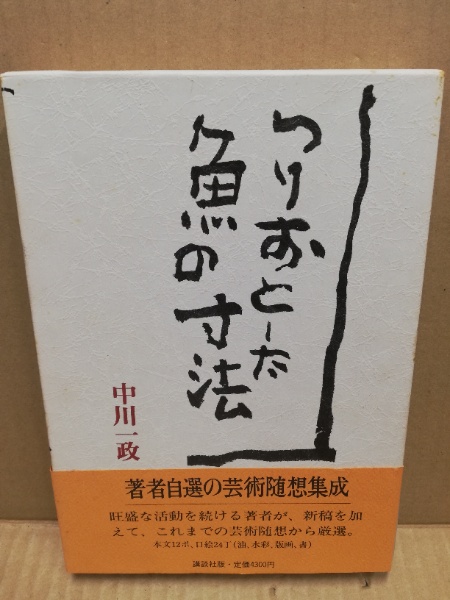 つりおとした
魚の寸法
中川一政
著者自選の芸術随想集成
旺盛な活動を続ける著者が、新稿を加
えて、これまでの芸術随想から厳選。
本文12ポ、口絵24丁(油、水彩、版画、書)
講談社版・定価4300円